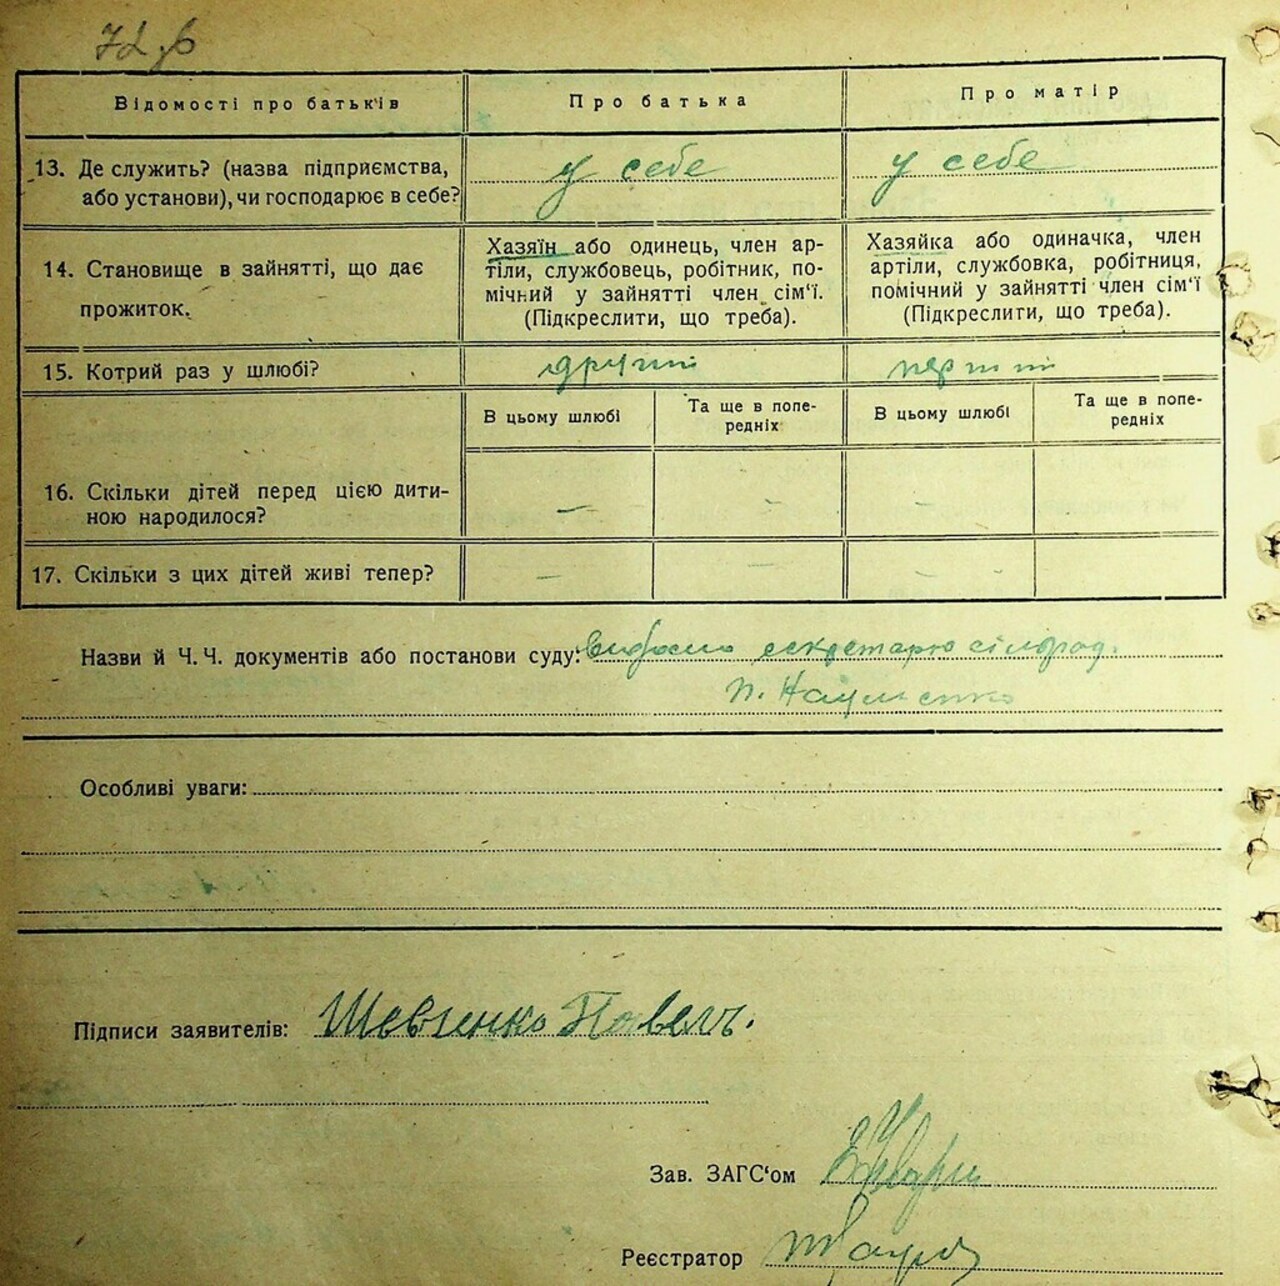 Відомості про батьків
Про батька
Про матір
13. Де служить? (назва підприємства, або установи), чи господарює в себе?
у себе
у себе
14. Становище в зайнятті, що дає прожиток.
Хазяїн або одинець, член ар-
тіли, службовець, робітник, по-
мічний у зайнятті член сім'ї.
(Підкреслити, що треба).
Хазяйка або одиначка, член
артіли, службовка, робітниця,
помічний у зайнятті член сім'ї
(Підкреслити, що треба).
15. Котрий раз у шлюбі?
другий
перший
В цьому шлюбі
Та ще в попе-
редніх
В цьому шлюбі
Та ще в попе-
редніх
16. Скільки дітей перед цією дити-
ною народилося?
— - - 
17. Скільки з цих дітей живі тепер?
— - - -
Назви й Ч. Ч. документів або постанови суду: секретарю сільрад.
п. Науменко
Особливі уваги:
Підписи заявителів: Шевченко Павелъ.
Зав. ЗАГС'ом
Реєстратор